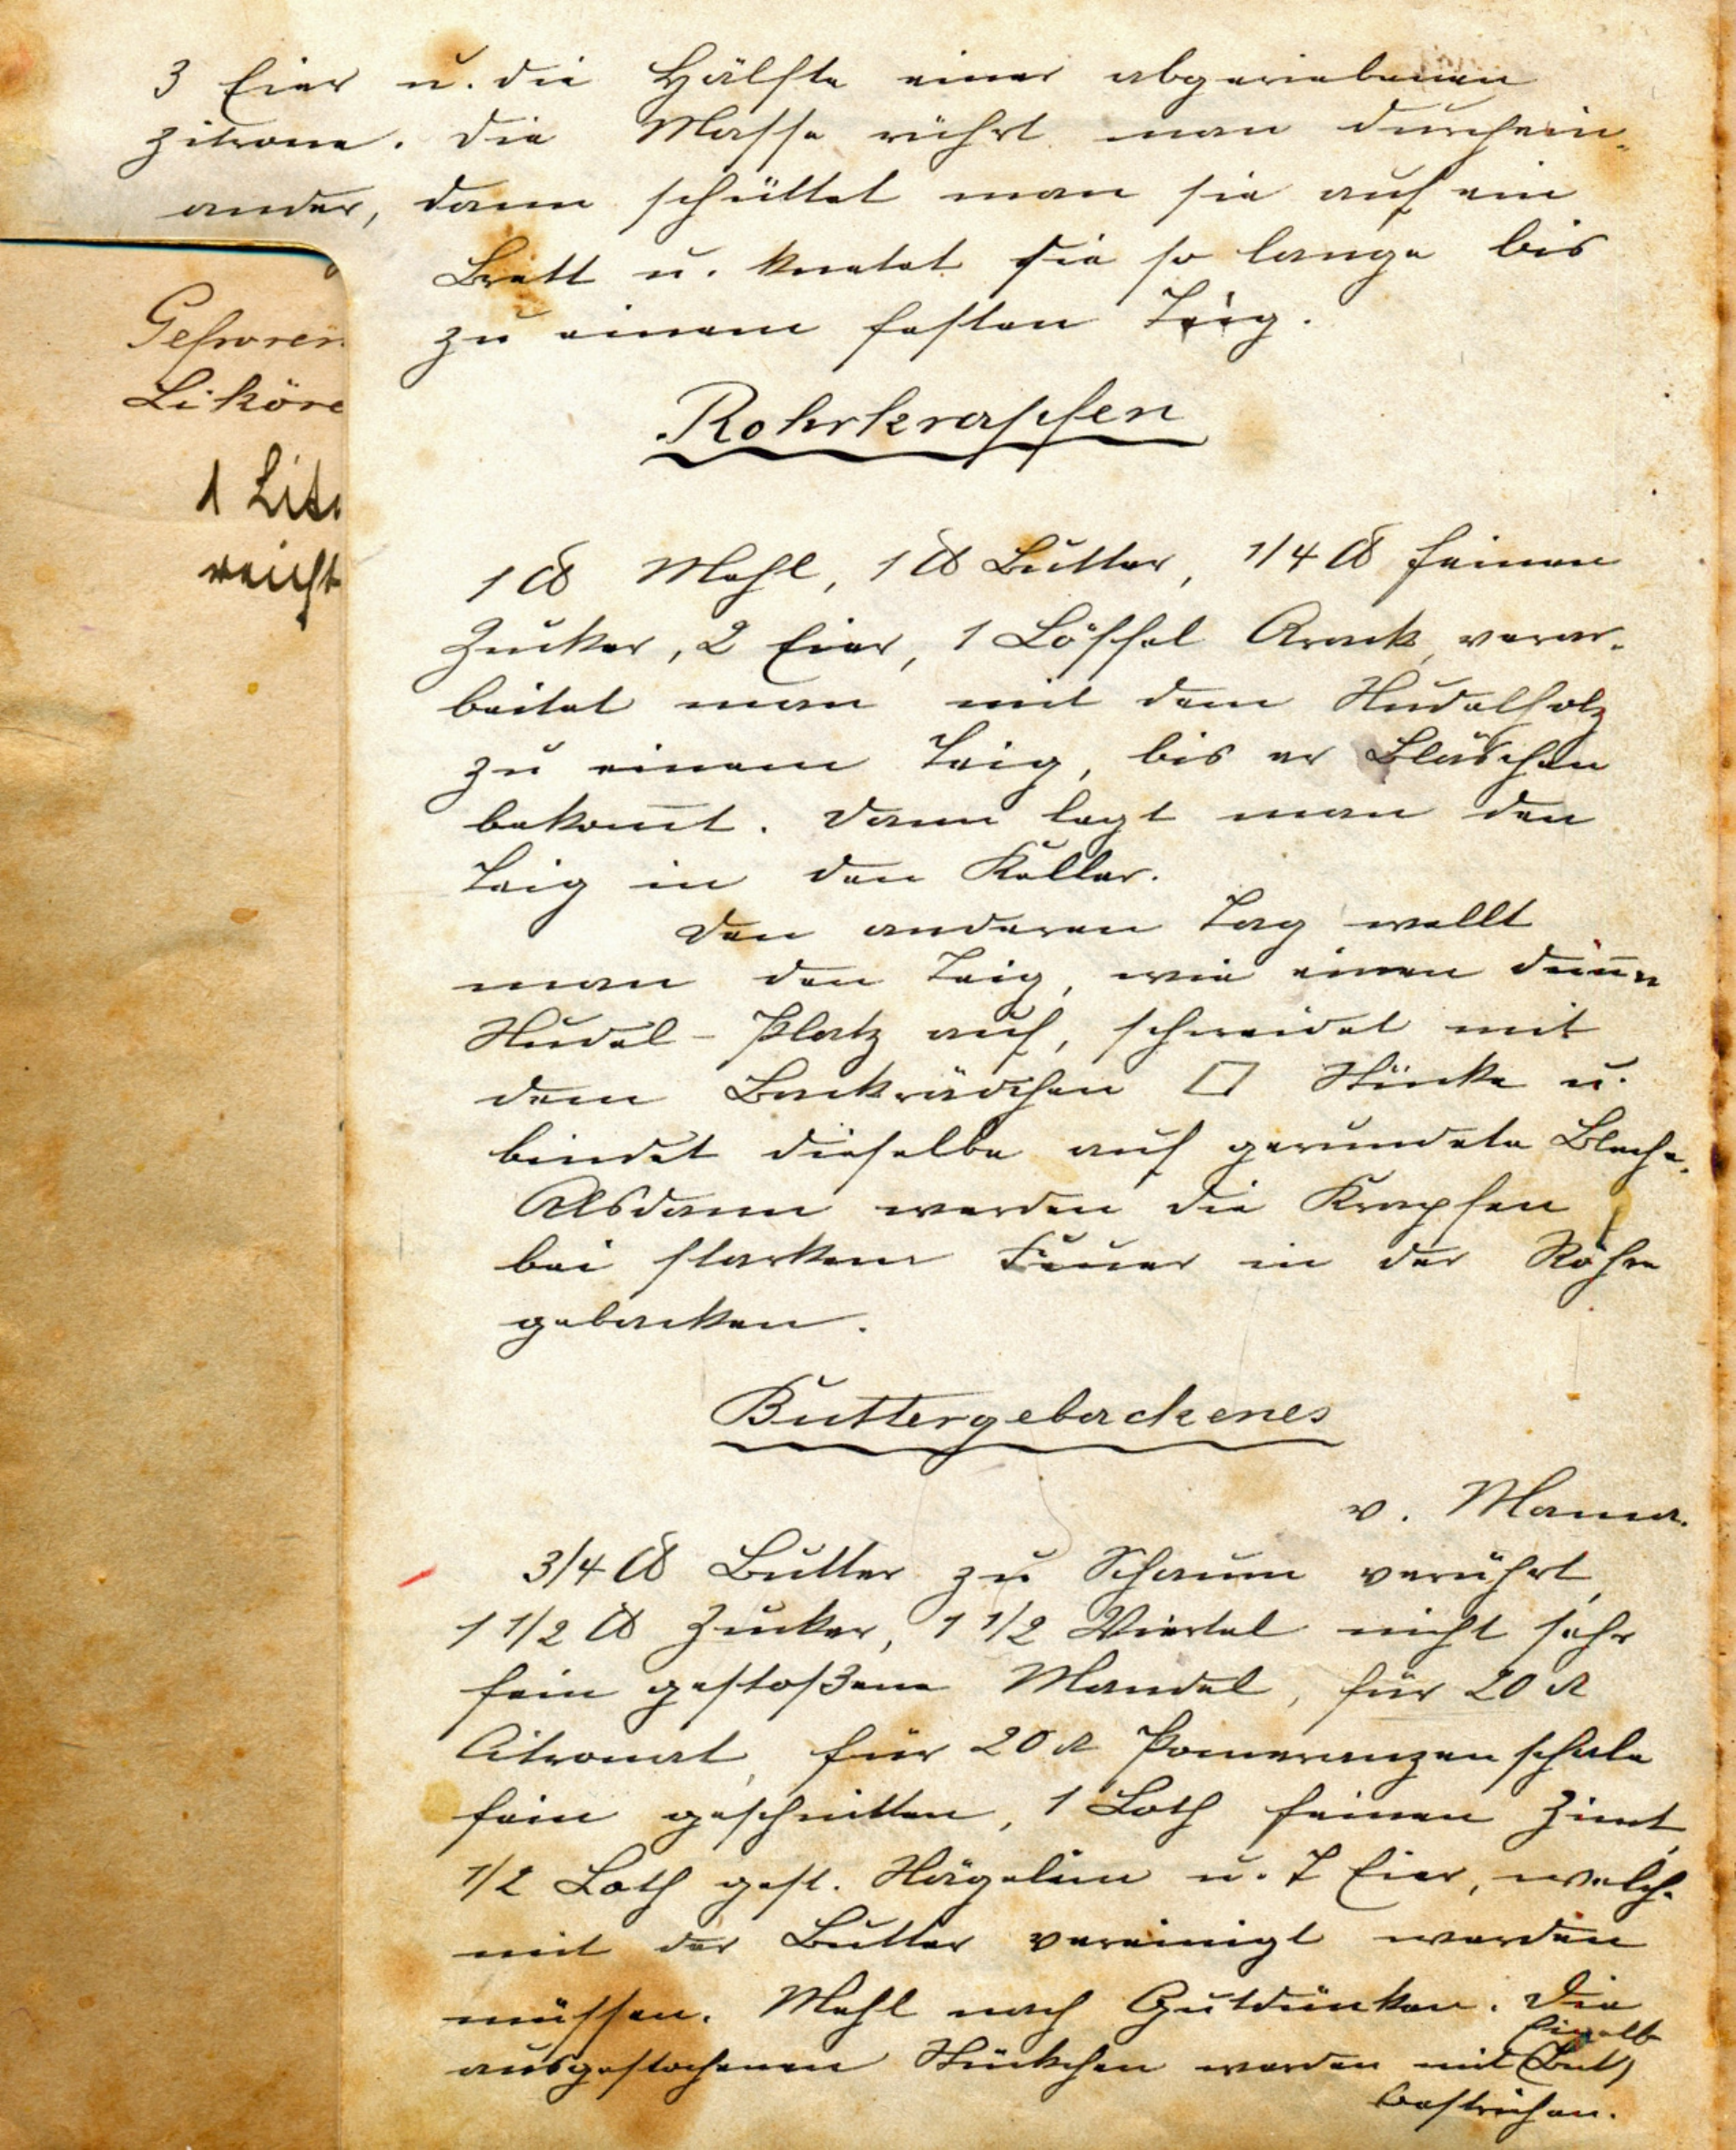 3 Eier u. die Hälfte einer abgeriebenen
Zitrone. Die Masse rührt man durchein-
ander, dann schüttet man sie auf ein
Brett u. knetet sie so lange bis
zu einem festen Teig.
Gefroren
Liköre
1 Lit
reicht
Rohrkrapfen
1 ℔ Mehl, 1 ℔ Butter, 1/4 ℔ feinen
Zucker, 2 Eier, 1 Löffel Arack, verar-
beitet man mit dem Nudelholz
zu einem Teig, bis er Bläschen
bekom̅t. Dann legt man den
Teig in den Keller.
Den anderen Tag wellt
man den Teig, wie einen dün̅en
Nudel-Platz auf, schneidet mit
dem Backrädchen □ Stücke u.
bindet dieselbe auf gerundete Bleche.
Alsdann werden die Krapfen
bei starkem Feuer in der Röhre
gebacken.
Buttergebackenes
v. Mama.
3/4 ℔ Butter zu Schaum verührt,
1 1/2 ℔ Zucker, 1 1/2 Viertel nicht sehr
fein gestoßene Mandel, für 20 ₰
Citronat, für 20 ₰ Pomeranzenschale
fein geschnitten, 1 Loth feinen Zimt,
1/2 Loth gest. Nägelein u. 7 Eier, welche
mit der Butter vereinigt werden
müssen. Mehl nach Gutdünken. Die
ausgestochenen Stückchen werden mit Eigelb
(But)
bestrichen.